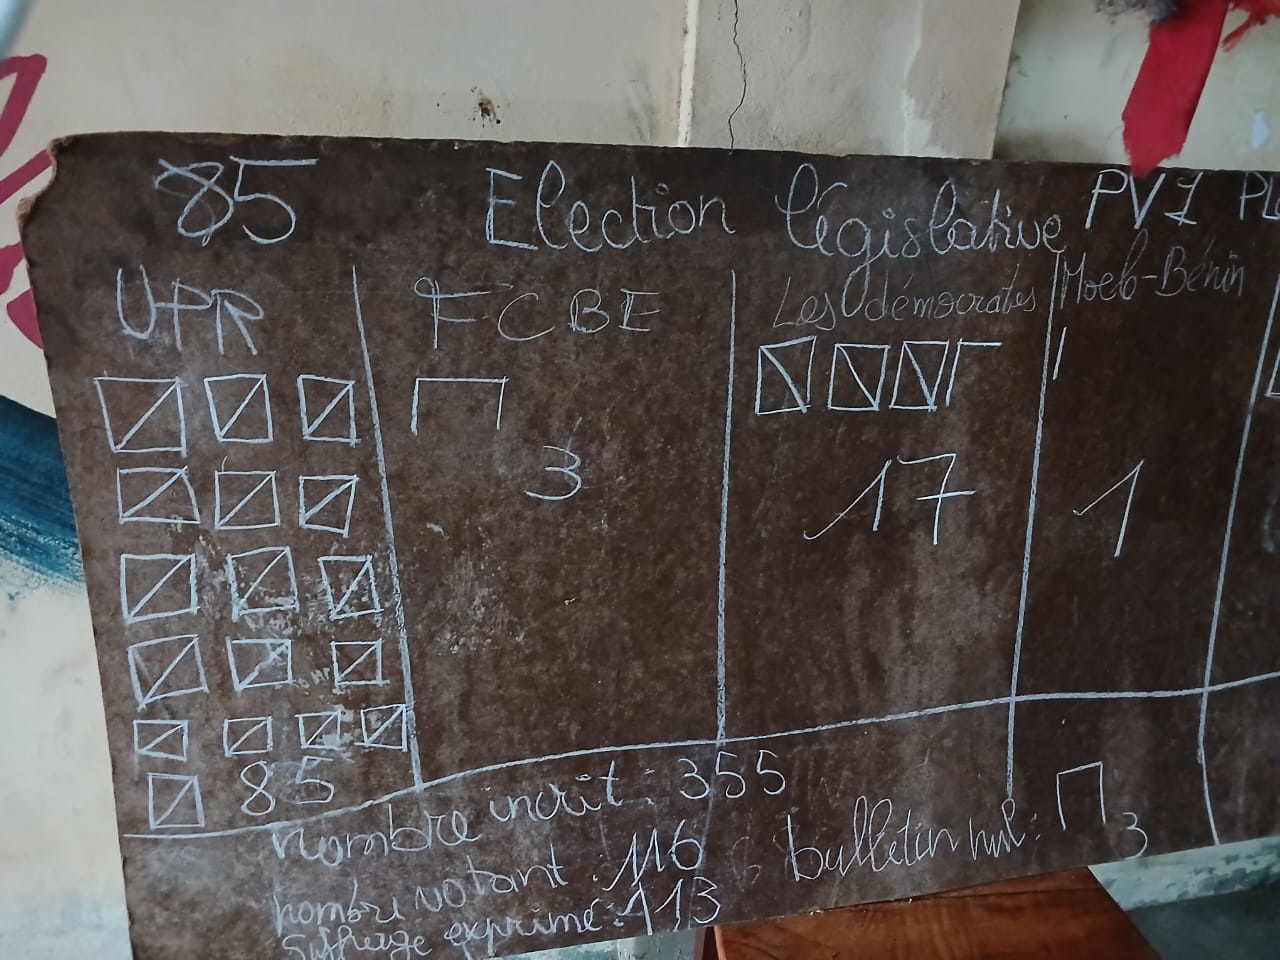 85 Election législative PV1 PL
UPR FCBE Les démocrates Moele-Bénin
3 17 1
85
nombre incrit : 355
nombre votant : 116 bulletin nul : 3
Suffrage exprimé : 113